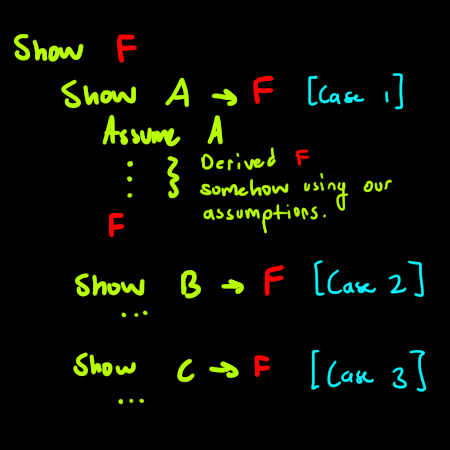 Show F
Show A → F [Case 1]
Assume A
Derived F
somehow using our
assumptions.
F
Show B → F [Case 2]
...
Show C → F [Case 3]
...